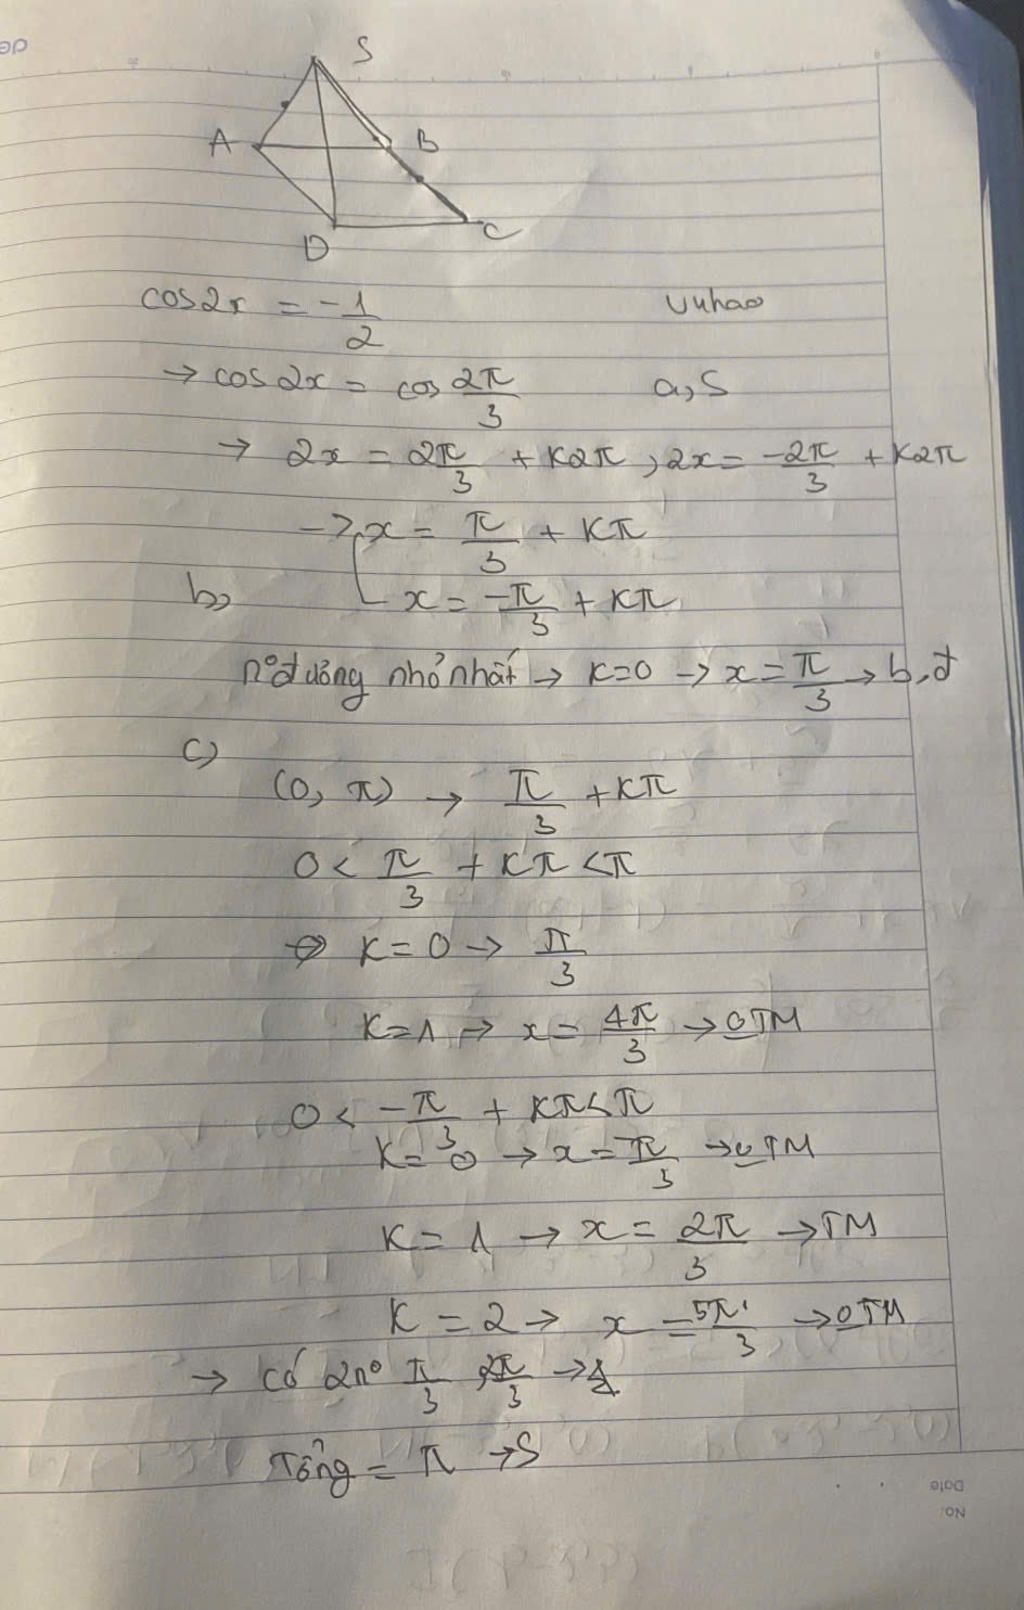 S
A
B
D
C
cos2x = -1/2
→ cos2x = cos 2π/3
a, S
→ 2x = 2π/3 + K2π, 2x = -2π/3 + K2π
→ x = π/3 + Kπ
b,
x = -π/3 + Kπ
n° dương nhỏ nhất → K=0 → x = π/3 → b, đ
c)
(0, π) → π/3 + Kπ
0 < π/3 + Kπ < π
K = 0 → π/3
K=1 → x = 4π/3 → 0TM
0 < -π/3 + Kπ < π
K = 0 → x = -π/3 → 0TM
K = 1 → x = 2π/3 → TM
K = 2 → x = 5π/3 → 0TM
→ có 2n° π/3, 2π/3
Tổng = π → S
Date
No: